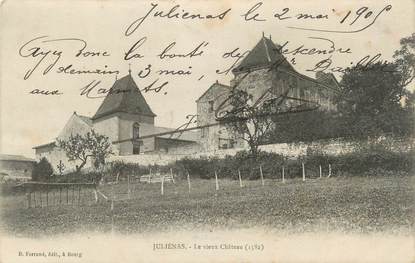 Julienas le 2 mai 1905
Ayez donc la bonté de descendre
demain 3 mai,
aux Marmets
JULIÉNAS. - Le vieux Château (1582)
D. Ferrand, édit., à Bourg